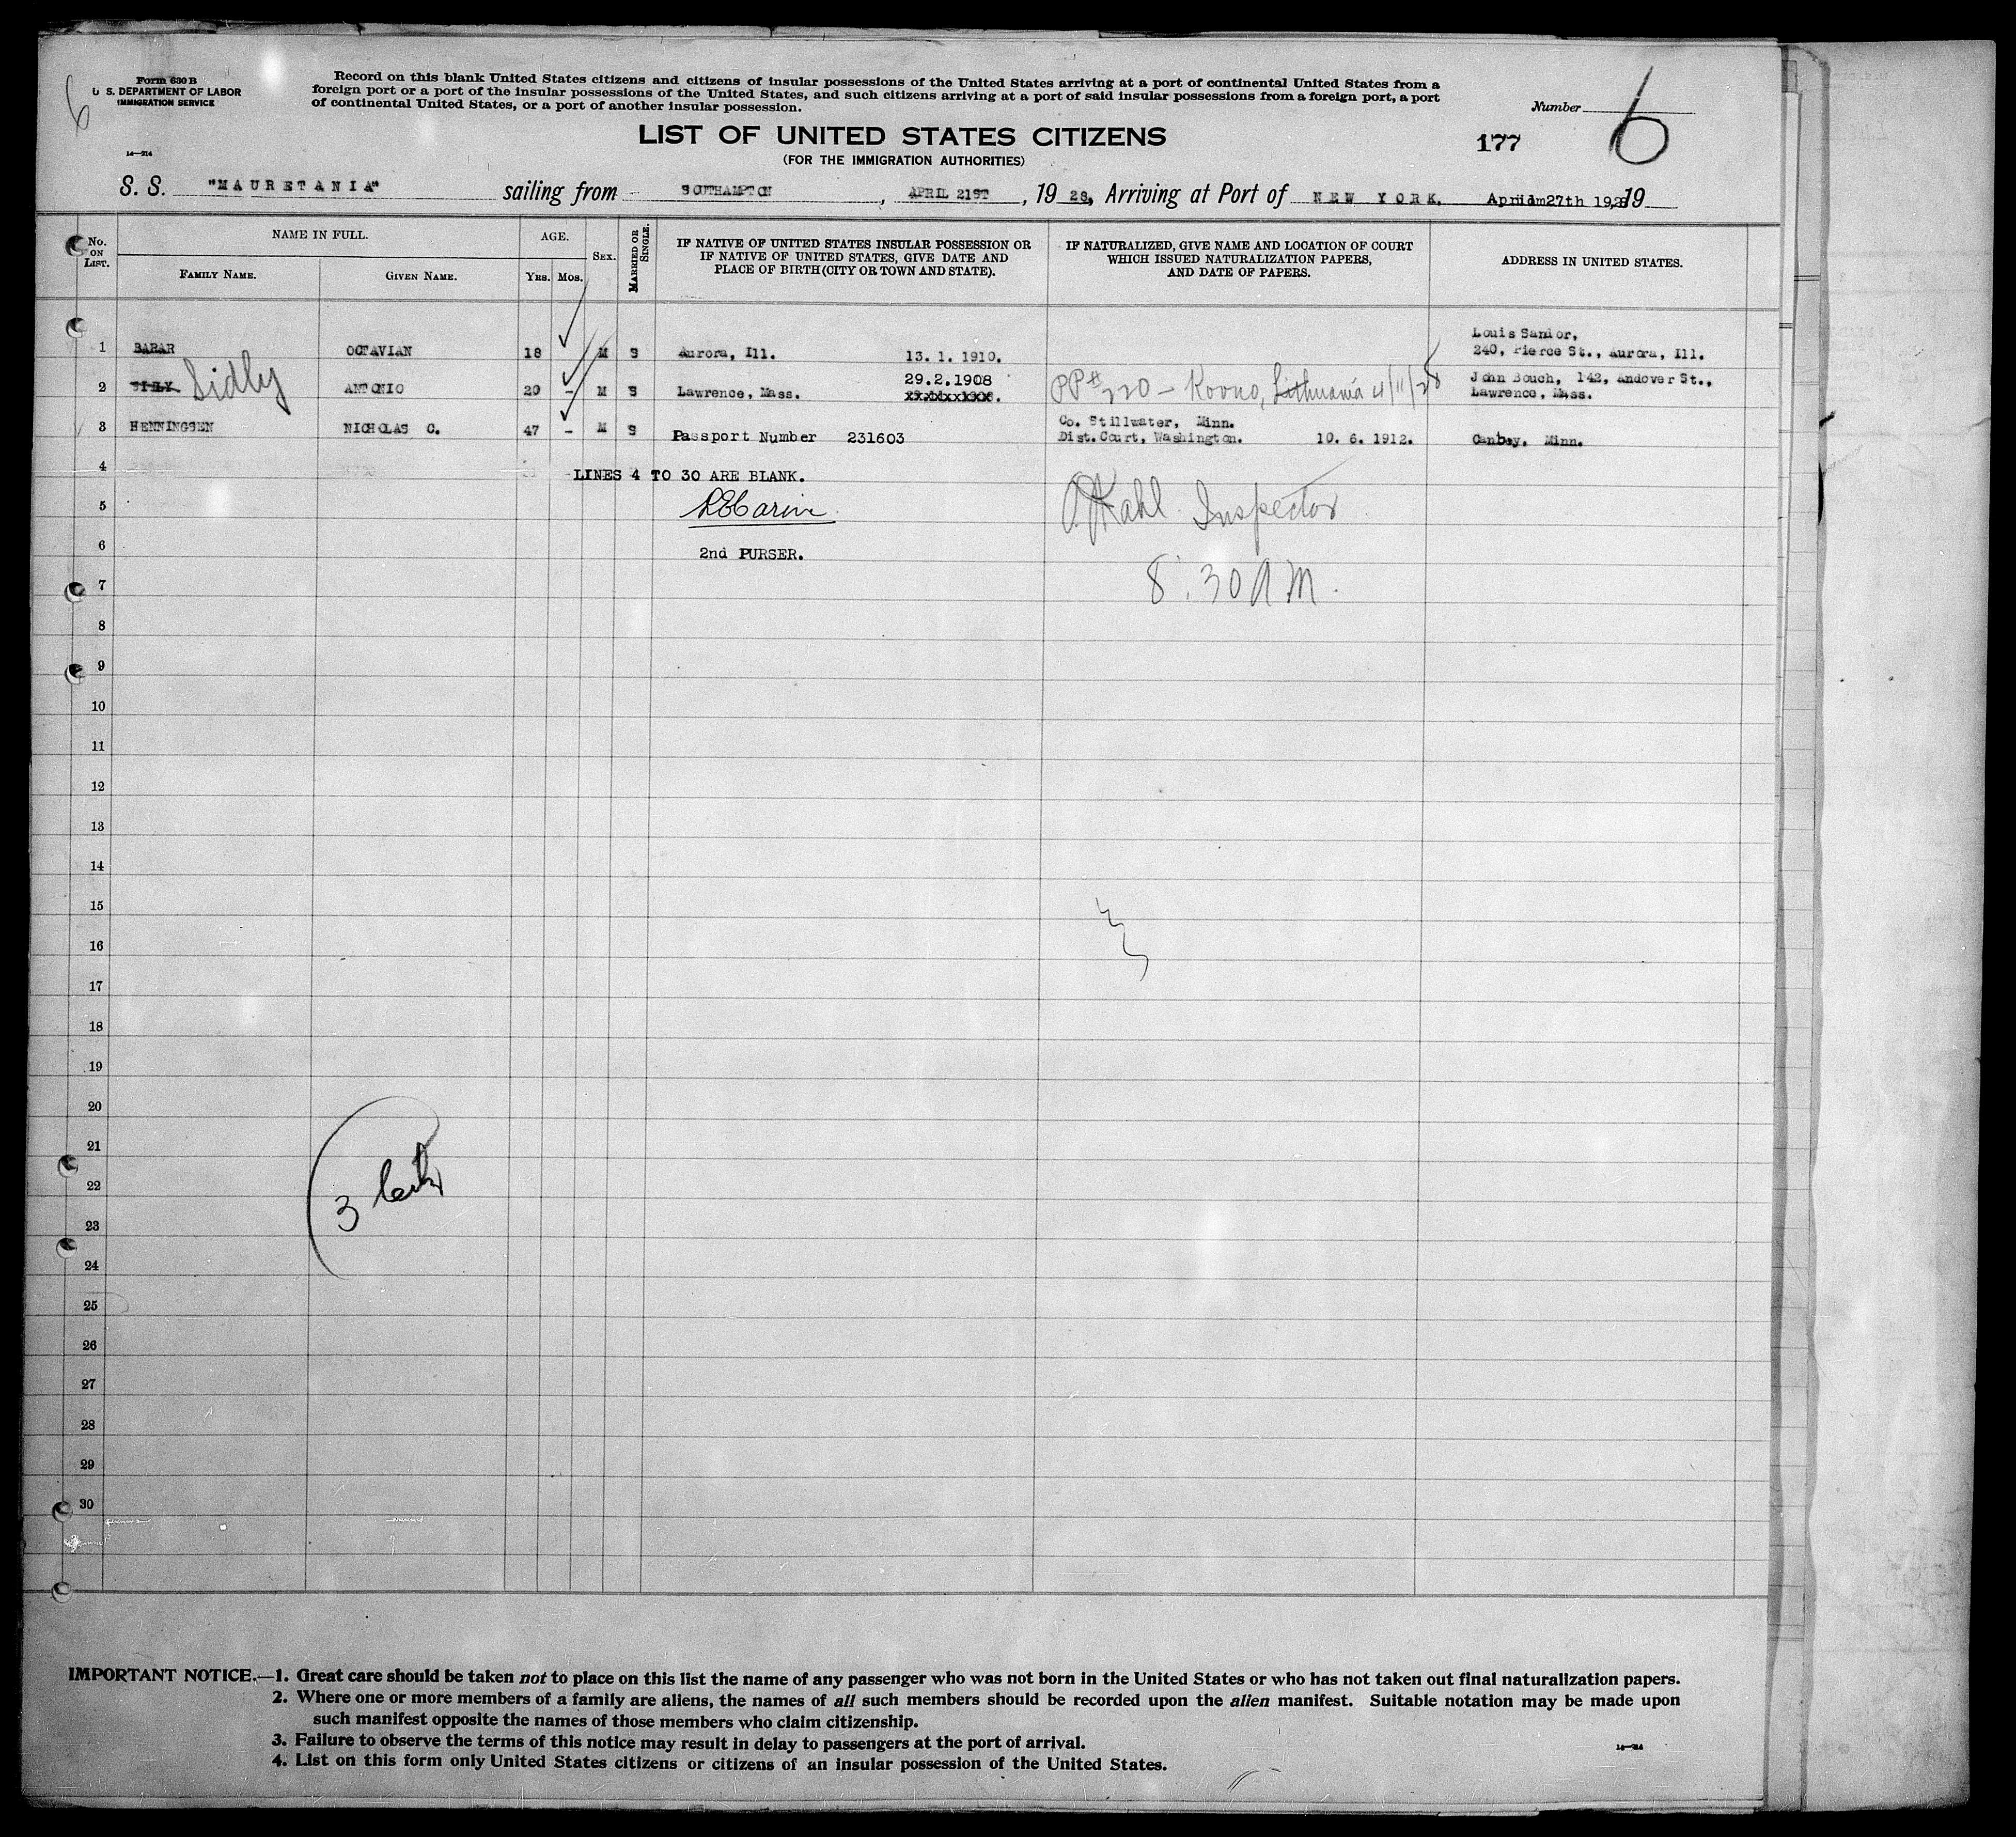 6
Form 630 B
U. S. DEPARTMENT OF LABOR
IMMIGRATION SERVICE
14—214
Record on this blank United States citizens and citizens of insular possessions of the United States arriving at a port of continental United States from a
foreign port or a port of the insular possessions of the United States, and such citizens arriving at a port of said insular possessions from a foreign port, a port
of continental United States, or a port of another insular possession.
Number 6
LIST OF UNITED STATES CITIZENS
177
(FOR THE IMMIGRATION AUTHORITIES)
S. S. "MAURETANIA" sailing from SOUTHAMPTON, APRIL 21ST, 1928, Arriving at Port of NEW YORK. 27th 1928, 19
No. ON LIST.
NAME IN FULL.
FAMILY NAME.
GIVEN NAME.
AGE.
YRS. MOS.
SEX.
MARRIED OR SINGLE.
IF NATIVE OF UNITED STATES INSULAR POSSESSION OR
IF NATIVE OF UNITED STATES, GIVE DATE AND
PLACE OF BIRTH (CITY OR TOWN AND STATE).
IF NATURALIZED, GIVE NAME AND LOCATION OF COURT
WHICH ISSUED NATURALIZATION PAPERS,
AND DATE OF PAPERS.
ADDRESS IN UNITED STATES.
Louis Sandor,
1 BABAR OCTAVIAN 18 M S Aurora, Ill. 13. 1. 1910. 240, Pierce St., Aurora, Ill.
29.2.1908 John Bouch, 142, Andover St.,
2 Sidly ANTONIO 20 - M S Lawrence, Mass. PP# 220 - Kovno, Lithuania 4/11/28 Lawrence, Mass.
Co. Stillwater, Minn.
3 HENNINGSEN NICHOLAS C. 47 - M S Passport Number 231603 Dist. Court, Washington. 10. 6. 1912. Canbay, Minn.
4 LINES 4 TO 30 ARE BLANK.
5 Kahl Inspector
6 2nd PURSER.
7 8:30 AM.
8
9
10
11
12
13
14
15
16
17
18
19
20
21
22 3
23
24
25
26
27
28
29
30
IMPORTANT NOTICE.—1. Great care should be taken not to place on this list the name of any passenger who was not born in the United States or who has not taken out final naturalization papers.
2. Where one or more members of a family are aliens, the names of all such members should be recorded upon the alien manifest. Suitable notation may be made upon
such manifest opposite the names of those members who claim citizenship.
3. Failure to observe the terms of this notice may result in delay to passengers at the port of arrival.
4. List on this form only United States citizens or citizens of an insular possession of the United States.
14—214